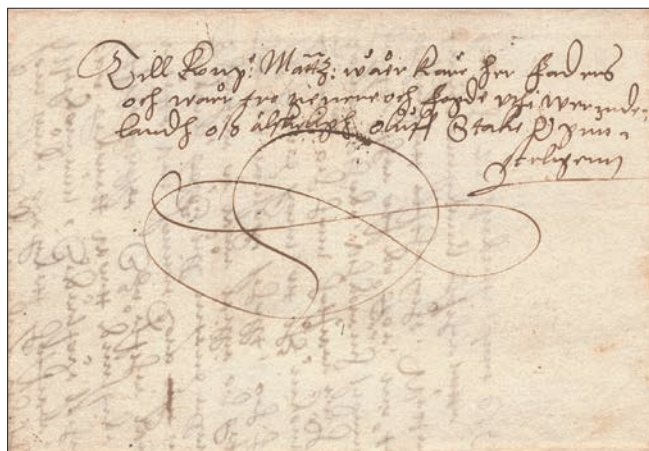 Till Konp: Mattz: wåer käre her faders
och wåer tro tienere och fogde vtpi wermde-
landh oss älskeligh oluff Stake gun-
steligenn